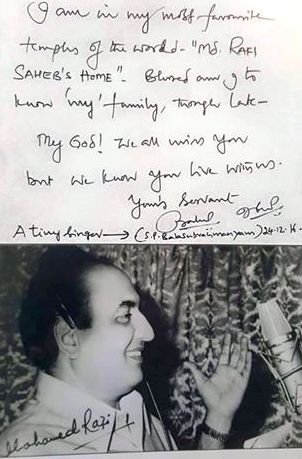 I am in my most favourite
temples of the world - "MD. RAFI
SAHEB'S HOME". Blessed am I to
know 'my' family, though late -
My God! We all miss you
but we know you live with us.
Yours Servant
A tiny Singer → (S.P. Balasubrahmanyam) 24-12-16
Mohamed Rafi